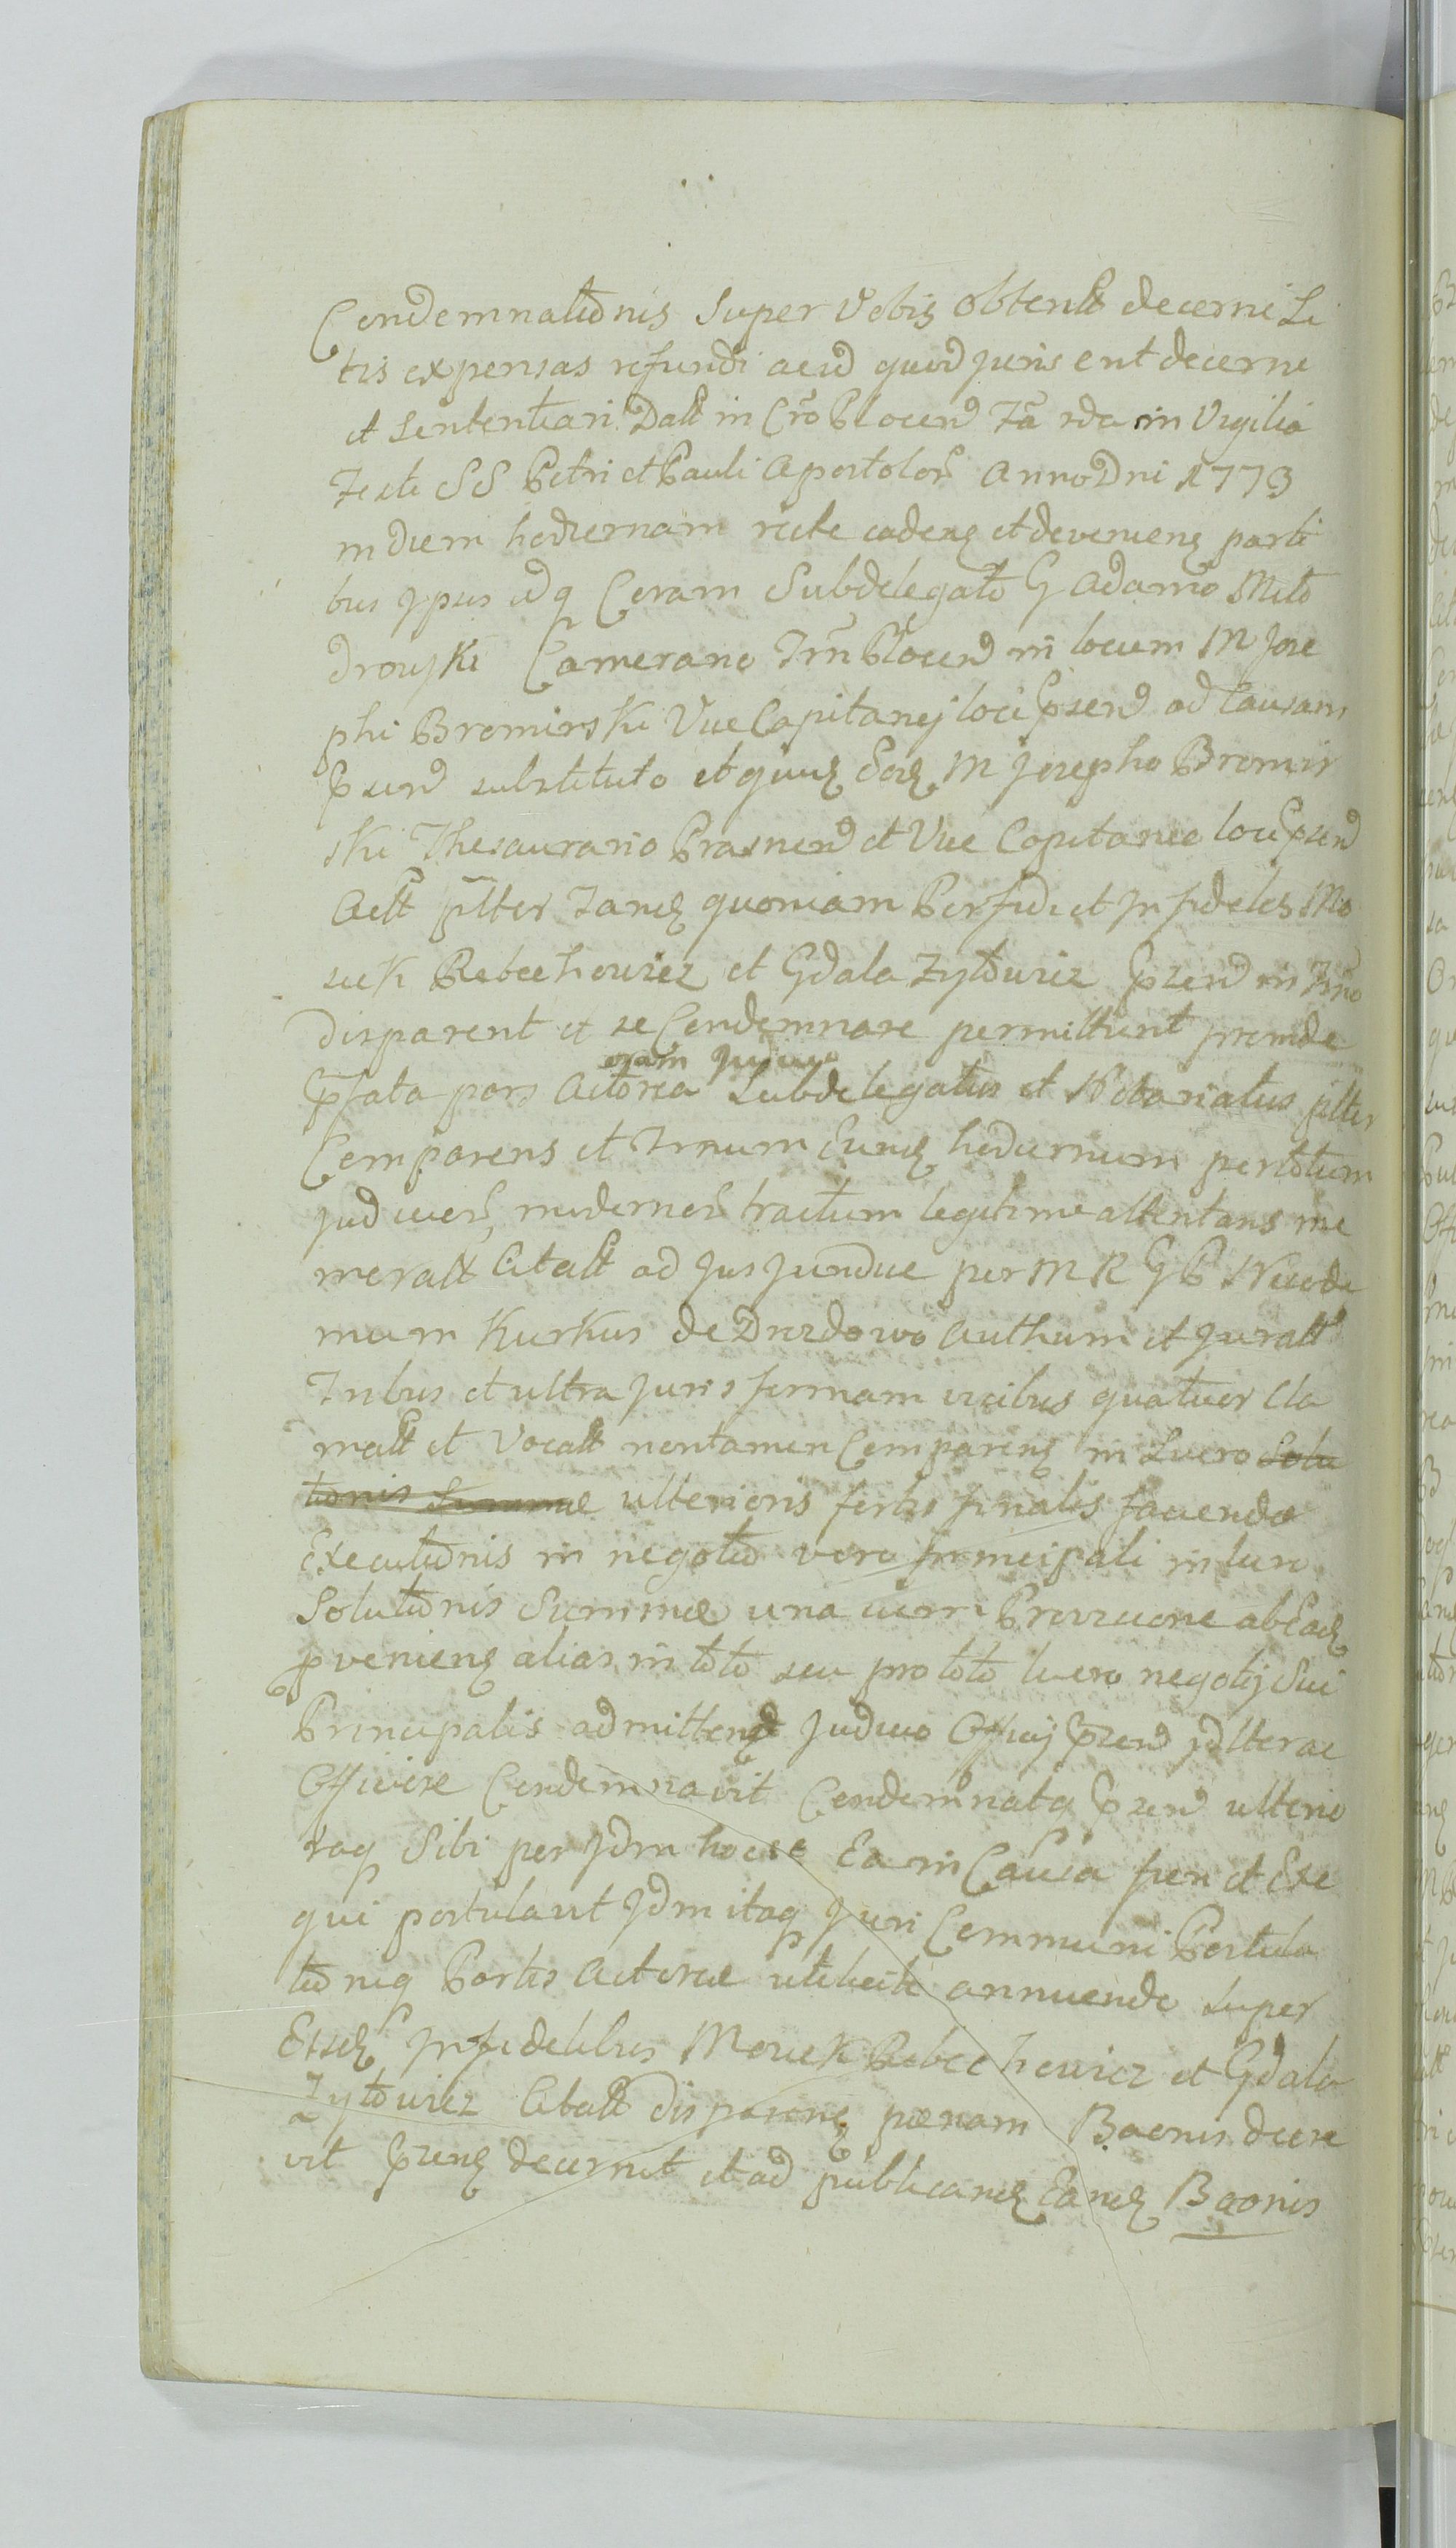 Condemnationis Super Vobis obtentt decerni Li
tis expensas refundi aliud quod juris erit decerni
et sententiari Datt in Cro Plocen Fa 2da in Vigilia
Festi SS Petri et Pauli Apostolor Anno Dni 1773
in diem hodiernam recte cadens et deveniens parti
bus ipsis idq Coram Subdelegato G Adamo Mito
drowski Camerario Trn Plocen in locum M Jose
phi Bromirski Vice Capitanej loci prsen ad Causam
prsen substituto et M Josepho Bromir
ski Thesaurario Prasnen et Vice Capitaneo loci prsen
Actt plter quoniam Perfidi et Infideles Mo
siek Rebechowicz et Gdala Zytowicz prsen in Trno
disparent et se Condemnare permittunt proinde
prfata pars Actorea coram Judicio Subdelegatus et Notariatus plter
Comparens et Trnum hodiernum per totum
Judicior modernor tractum legitime attentans me
moratt Citatt ad Jus Jundice per M R G P Nicode
mum Kurkus de Drozdowo authum et Juratt
Tribus et ultra Juris formam vicibus quatuor Cla
matt et Vocatt non tamen Comparens in Lucro Solu
tionis Summae ulterioris fortis finalis facienda
Executionis in negotio vero principali in lucro
Solutionis Summae una cum Provisione ab Ead
proveniens alias in toto seu pro toto lucro negotij Sui
Principalis admittend Judicio Officij prsen
Officiose Condemnavit Condemnataq prsen ulterio
raq Sibi per Jdm hocce Ea in Causa fieri et Exe
qui postulavit Jdm itaq Juri Communi Postula
tioniq Partis Actoreae uti licite annuendo super
Eisd Infidelibus Mosiek Rebechowicz et Gdala
Zytowicz Citatt disparens poenam Baonis decre
vit prsens decernit et ad publicand Eand Baonis